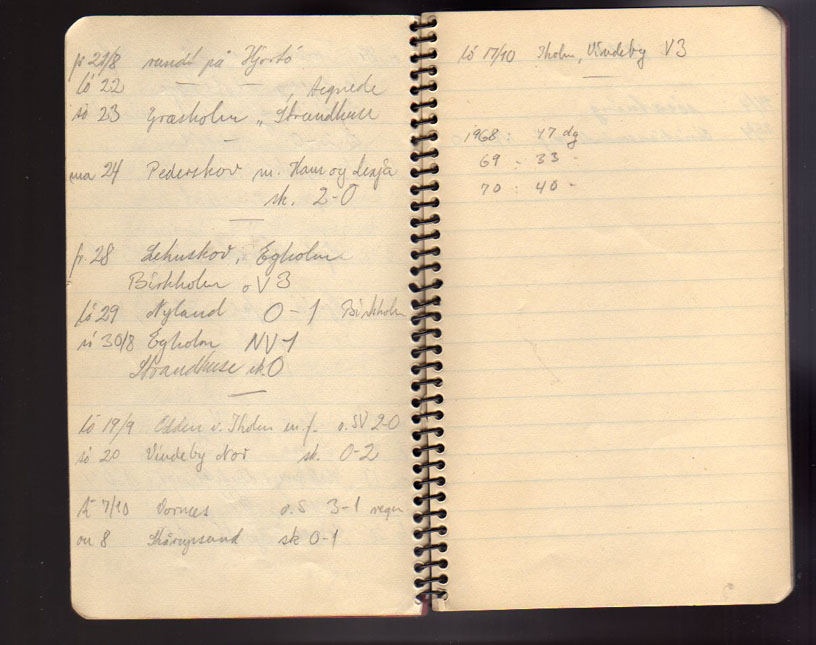 fr 21/8 rundt på Hjortö
lö 22 — — , Aegnede
sö 23 Græsholm „ Strandhuse
ma 24 Pederskov m. Ham og
sk. 2-0
fr. 28 Lehnskov, Egholm
Birkholm o V3
lö 29 Nyland 0-1 Birkholm
sö 30/8 Egholm NV-1
Strandhuse sk 0
lö 19/9 Odden v. Tholm m.f. o. SV 2-0
sö 20 Vindeby Nor sk. 0-2
7/10 Vornæs o. S 3-1 regn
on 8 Skårupsund sk 0-1
lö 17/10 Tholm, Vindeby V3
1968 : 47 dg
69 : 33 -
70 : 40 -